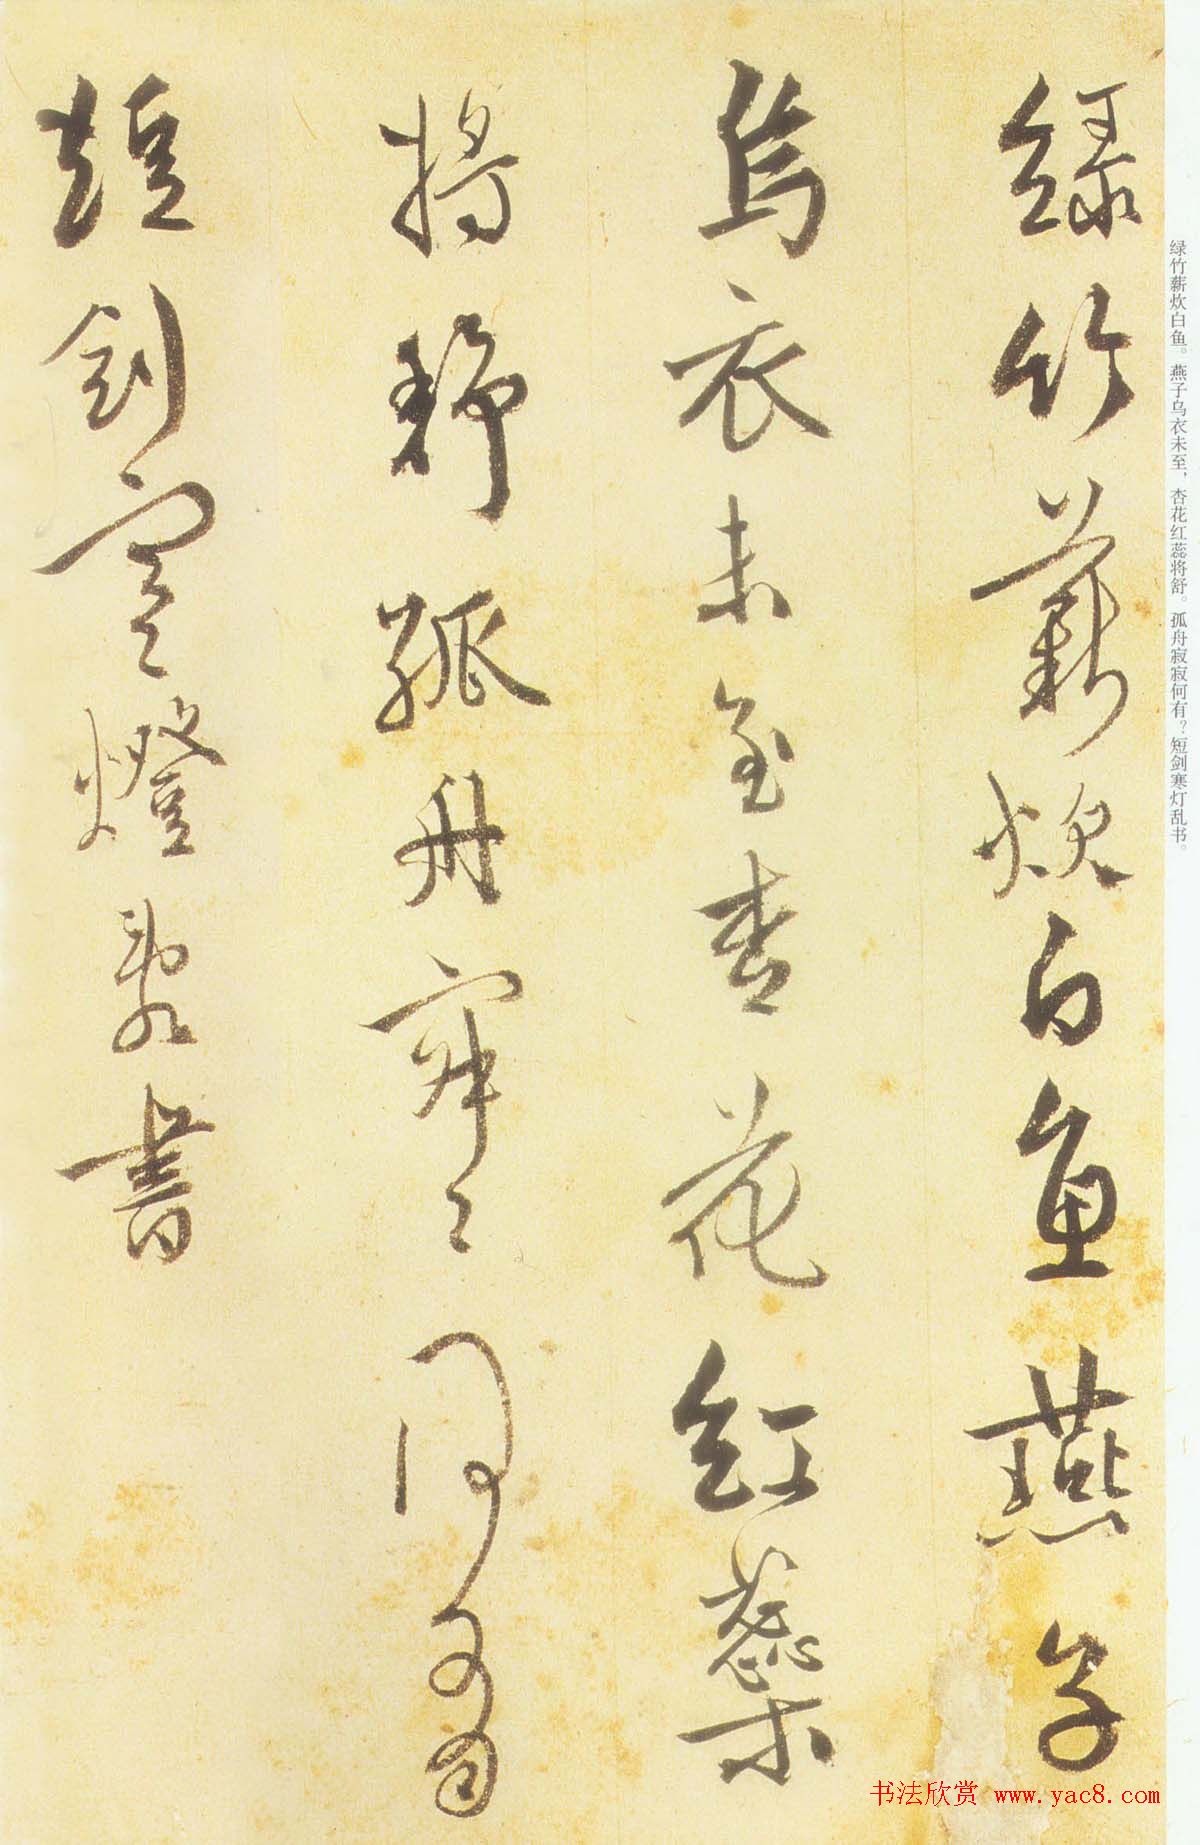 綠竹薪炊白魚燕子
烏衣未至杏花紅蘂
將舒孤舟寂〻何有
短劍寒燈亂書
绿竹薪炊白鱼。燕子乌衣未至，杏花红蕊将舒。孤舟寂寂何有？短剑寒灯乱书。
书法欣赏 www.yac8.com